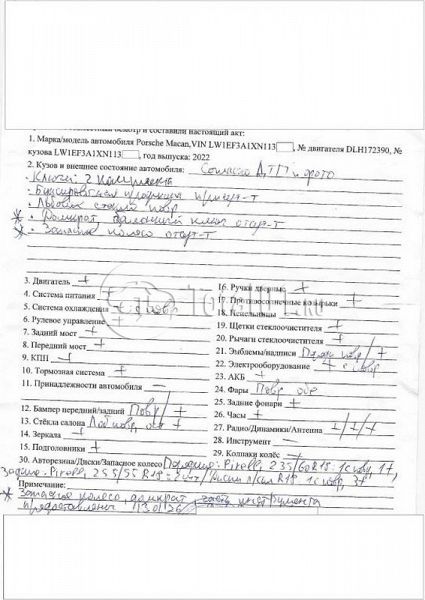 осмотр и составили настоящий акт:
1. Марка/модель автомобиля Porsche Macan, VIN LW1EF3A1XN113 , № двигателя DLH172390, №
кузова LW1EF3A1XN113 , год выпуска: 2022
2. Кузов и внешнее состояние автомобиля: Согласно ДТП и фото
- Ключи: 2 комплекта
- Буксировочная проушина
- Лобовое стекло повр
* - Домкрат, балонный ключ отст-т
* - Запасное колесо отст-т
3. Двигатель +
4. Система питания +
5. Система охлаждения + повр
6. Рулевое управление +
7. Задний мост +
8. Передний мост +
9. КПП +
10. Тормозная система +
11. Принадлежности автомобиля –
12. Бампер передний/задний Повр / +
13. Стёкла салона Лоб повр, ост +
14. Зеркала +
15. Подголовники +
16. Ручки дверные +
17. Противосолнечные козырьки +
18. Пепельницы
19. Щетки стеклоочистителя +
20. Рычаги стеклоочистителя +
21. Эмблемы/надписи повр / +
22. Электрооборудование + с повр
23. АКБ +
24. Фары Повр обе
25. Задние фонари +
26. Часы +
27. Радио/Динамики/Антенна +/+/+
28. Инструмент –
29. Колпаки колёс +
30. Авторезина/Диски/Запасное колесо Передние: Pirelli, 235/60R18: 1с повр, 1+,
Задние: Pirelli, 255/55 R18 - 2шт / R18 1с повр, 3+
Примечание:
* Запасное колесо, домкрат, часть инструмента